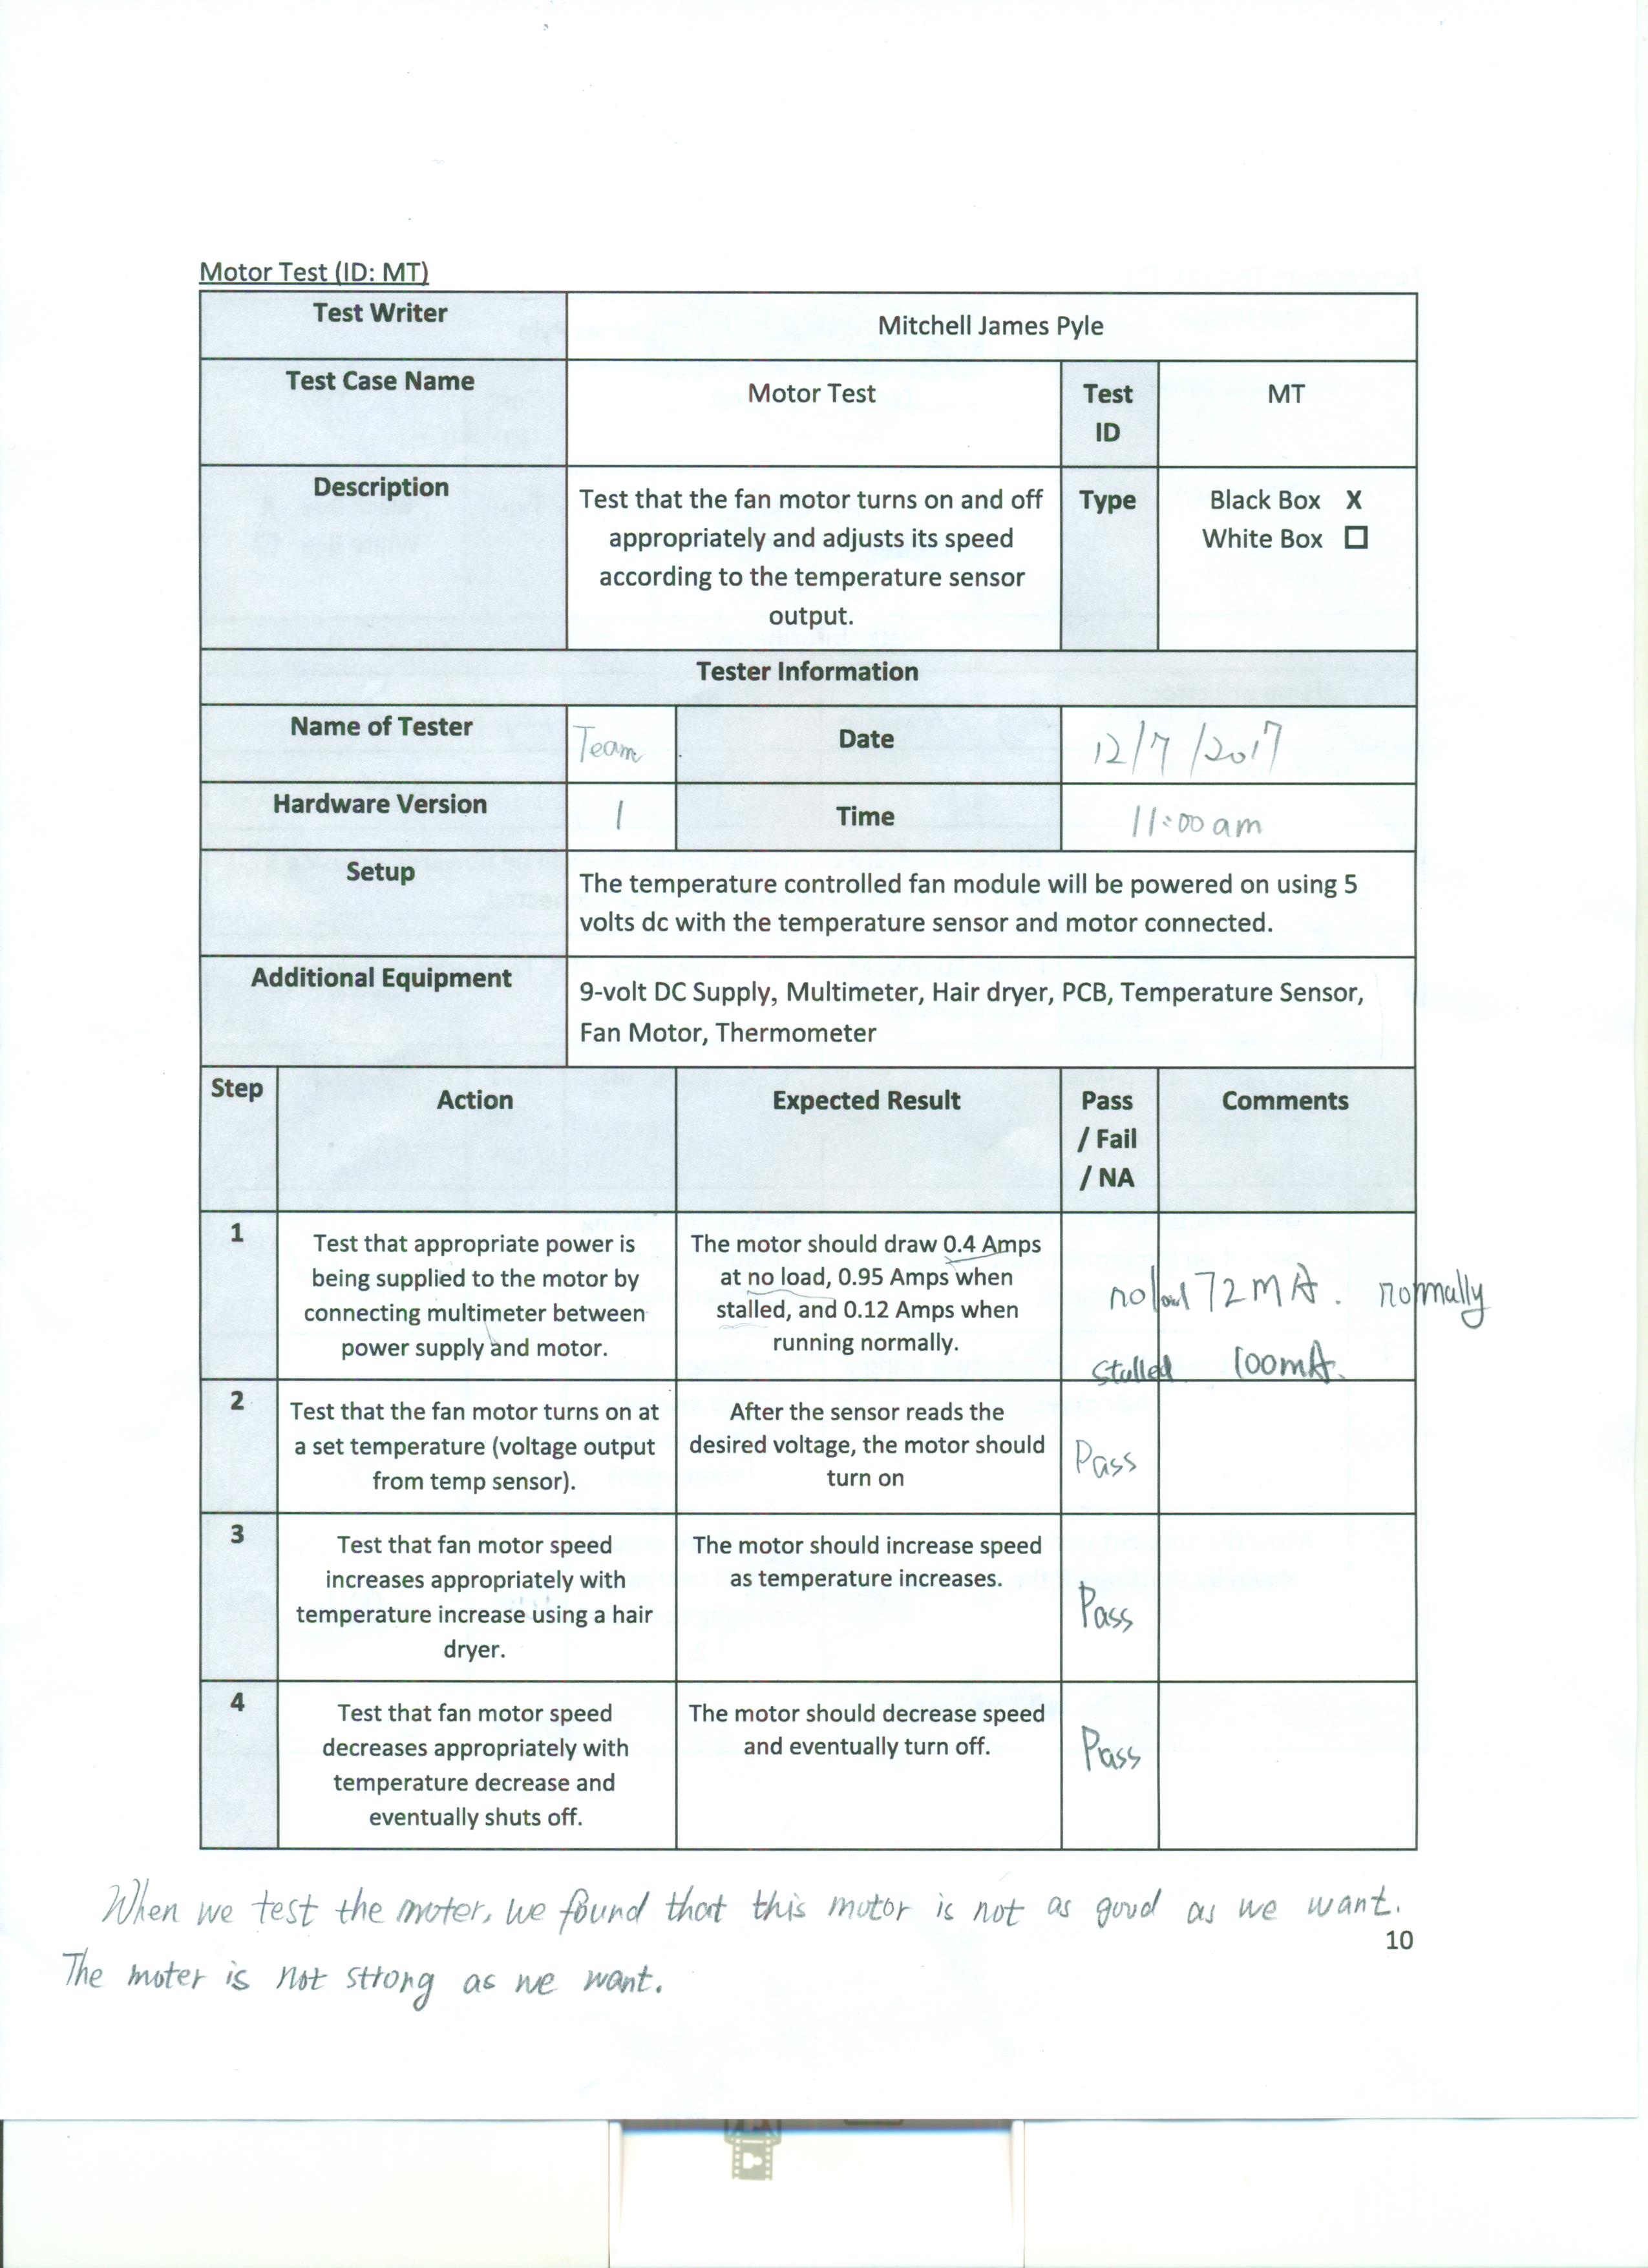 Motor Test (ID: MT)
Test Writer
Mitchell James Pyle
Test Case Name
Motor Test
Test
ID
MT
Description
Test that the fan motor turns on and off
appropriately and adjusts its speed
according to the temperature sensor
output.
Type
Black Box X
White Box ☐
Tester Information
Name of Tester
Team
Date
12/7/2017
Hardware Version
1
Time
11:00am
Setup
The temperature controlled fan module will be powered on using 5
volts dc with the temperature sensor and motor connected.
Additional Equipment
9-volt DC Supply, Multimeter, Hair dryer, PCB, Temperature Sensor,
Fan Motor, Thermometer
Step
Action
Expected Result
Pass
/ Fail
/ NA
Comments
1
Test that appropriate power is
being supplied to the motor by
connecting multimeter between
power supply and motor.
The motor should draw 0.4 Amps
at no load, 0.95 Amps when
stalled, and 0.12 Amps when
running normally.
no load 72mA. normally
stalled 100mA.
2
Test that the fan motor turns on at
a set temperature (voltage output
from temp sensor).
After the sensor reads the
desired voltage, the motor should
turn on
Pass
3
Test that fan motor speed
increases appropriately with
temperature increase using a hair
dryer.
The motor should increase speed
as temperature increases.
Pass
4
Test that fan motor speed
decreases appropriately with
temperature decrease and
eventually shuts off.
The motor should decrease speed
and eventually turn off.
Pass
When we test the moter, we found that this motor is not as good as we want.
10
The moter is not strong as we want.